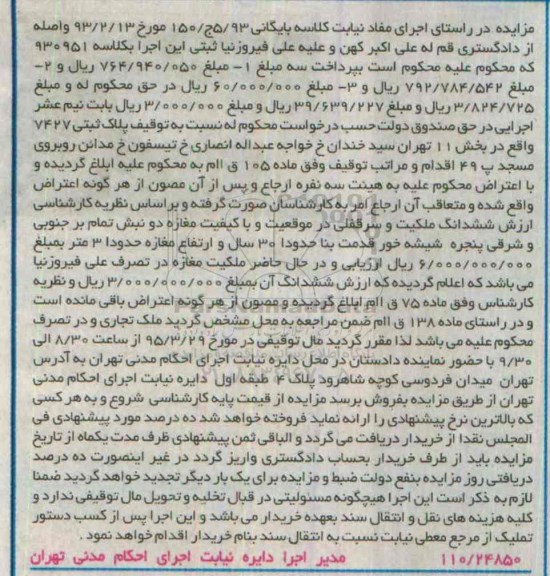 مزایده در راستای اجرای مفاد نیابت کلاسه بایگانی ۵/۹۳ج/۱۵۰ مورخ ۹۳/۲/۱۳ واصله
از دادگستری قم له علی اکبر کهن و علیه علی فیروزنیا ثبتی این اجرا بکلاسه ۹۳۰۹۵۱
که محکوم علیه محکوم است بپرداخت سه مبلغ ۱- مبلغ ۷۶۴/۹۴۰/۰۵۰ ریال و ۲-
مبلغ ۷۹۲/۷۸۴/۵۴۲ ریال و ۳- مبلغ ۶۰/۰۰۰/۰۰۰ ریال در حق محکوم له و مبلغ
۳/۸۲۴/۷۲۵ ریال و مبلغ ۳۹/۶۳۹/۲۲۷ ریال و مبلغ ۳/۰۰۰/۰۰۰ ریال بابت نیم عشر
اجرایی در حق صندوق دولت حسب درخواست محکوم له نسبت به توقیف پلاک ثبتی ۷۴۲۷
واقع در بخش ۱۱ تهران سید خندان خ خواجه عبداله انصاری خ تیسفون خ مدائن روبروی
مسجد پ ۴۹ اقدام و مراتب توقیف وفق ماده ۱۰۵ ق اام به محکوم علیه ابلاغ گردیده و
با اعتراض محکوم علیه به هیئت سه نفره ارجاع و پس از آن مصون از هر گونه اعتراض
واقع شده و متعاقب آن ارجاع امر به کارشناسان صورت گرفته و بر اساس نظریه کارشناسی
ارزش ششدانگ ملکیت و سرقفلی در موقعیت و با کیفیت مغازه دو نبش تمام بر جنوبی
و شرقی پنجره شیشه خور قدمت بنا حدودا ۳۰ سال و ارتفاع مغازه حدودا ۳ متر بمبلغ
۶/۰۰۰/۰۰۰/۰۰۰ ریال ارزیابی و در حال حاضر ملکیت مغازه در تصرف علی فیروزنیا
می باشد که اعلام گردیده که ارزش ششدانگ آن بمبلغ ۳/۰۰۰/۰۰۰/۰۰۰ ریال و نظریه
کارشناس وفق ماده ۷۵ ق اام ابلاغ گردیده و مصون از هر گونه اعتراض باقی مانده است
و در راستای ماده ۱۳۸ ق اام ضمن مراجعه به محل مشخص گردید ملک تجاری و در تصرف
محکوم علیه می باشد لذا مقرر گردید مال توقیفی در مورخ ۹۵/۳/۲۹ از ساعت ۸/۳۰ الی
۹/۳۰ با حضور نماینده دادستان در محل دایره نیابت اجرای احکام مدنی تهران به آدرس
تهران میدان فردوسی کوچه شاهرود پلاک ۴ طبقه اول دایره نیابت اجرای احکام مدنی
تهران از طریق مزایده بفروش برسد مزایده از قیمت پایه کارشناسی شروع و به هر کسی
که بالاترین نرخ پیشنهادی را ارائه نماید فروخته خواهد شد ده درصد مورد پیشنهادی فی
المجلس نقدا از خریدار دریافت می گردد و الباقی ثمن پیشنهادی ظرف مدت یکماه از تاریخ
مزایده باید از طرف خریدار بحساب دادگستری واریز گردد در غیر اینصورت ده درصد
دریافتی روز مزایده بنفع دولت ضبط و مزایده برای یک بار دیگر تجدید خواهد گردید ضمنا
لازم به ذکر است این اجرا هیچگونه مسئولیتی در قبال تخلیه و تحویل مال توقیفی ندارد و
کلیه هزینه های نقل و انتقال سند بعهده خریدار می باشد و این اجرا پس از کسب دستور
تملیک از مرجع معطی نیابت نسبت به انتقال سند بنام خریدار اقدام خواهد نمود.
۱۱۰/۲۴۸۵۰ مدیر اجرا دایره نیابت اجرای احکام مدنی تهران